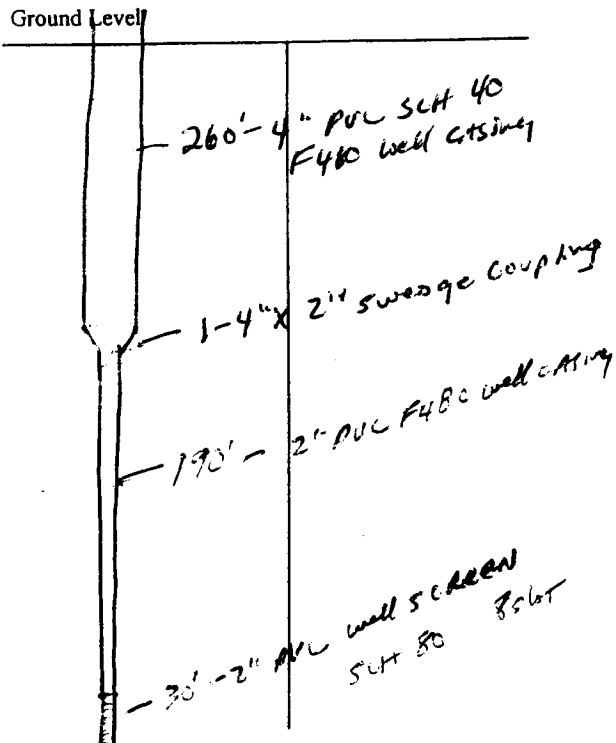 Ground Level
260' - 4" PVC SCH 40
F480 well casing
1 - 4" X 2" swedge coupling
190' - 2" PVC F480 well casing
30' - 2" PVC well SCREEN
SCH 80 8 slot